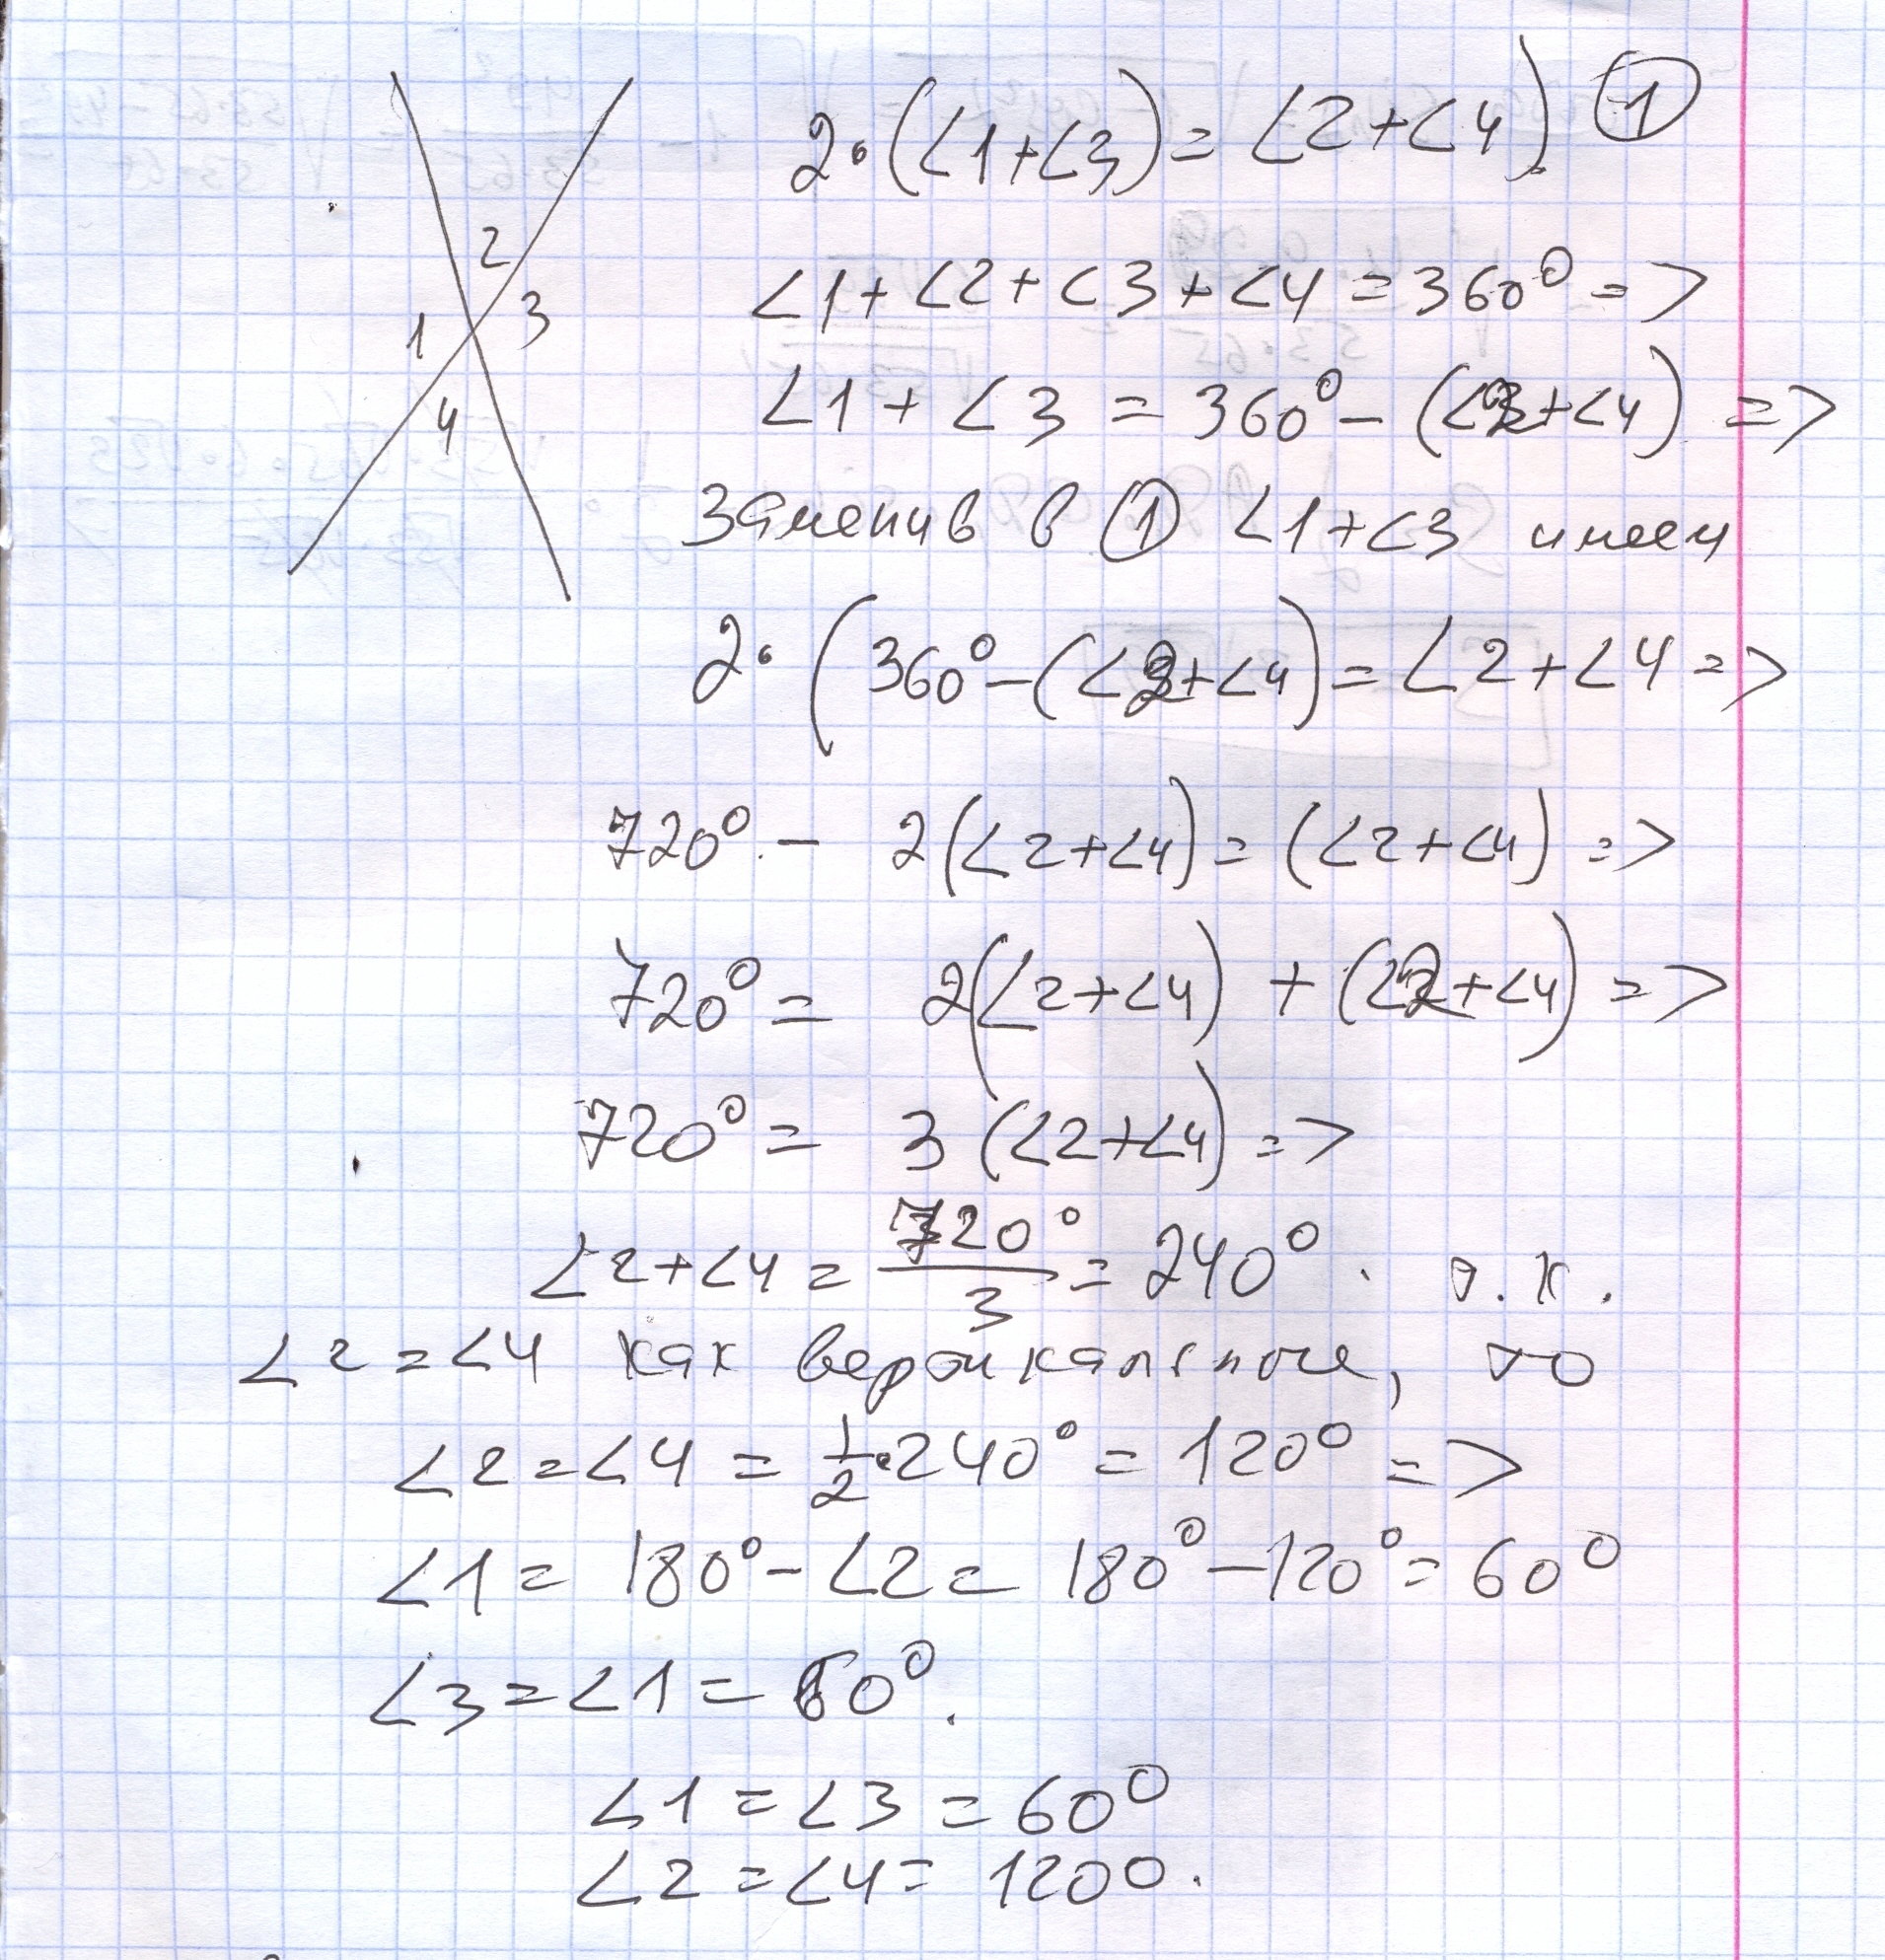 2·(∠1+∠3)=∠2+∠4) ①
2
3
1
4
∠1+∠2+∠3+∠4=360⁰=>
∠1+∠3=360⁰-(∠2+∠4)=>
Заменив в ① ∠1+∠3 имеем
2·(360⁰-(∠2+∠4)=∠2+∠4=>
720⁰.- 2(∠2+∠4)=(∠2+∠4)=>
720⁰= 2(∠2+∠4)+(∠2+∠4)=>
720⁰= 3(∠2+∠4)=>
∠2+∠4=720⁰/3=240⁰. т.к.
∠2=∠4 как вертикальные, то
∠2=∠4=1/2·240⁰=120⁰=>
∠1=180⁰-∠2=180⁰-120⁰=60⁰
∠3=∠1=60⁰.
∠1=∠3=60⁰
∠2=∠4=120⁰.